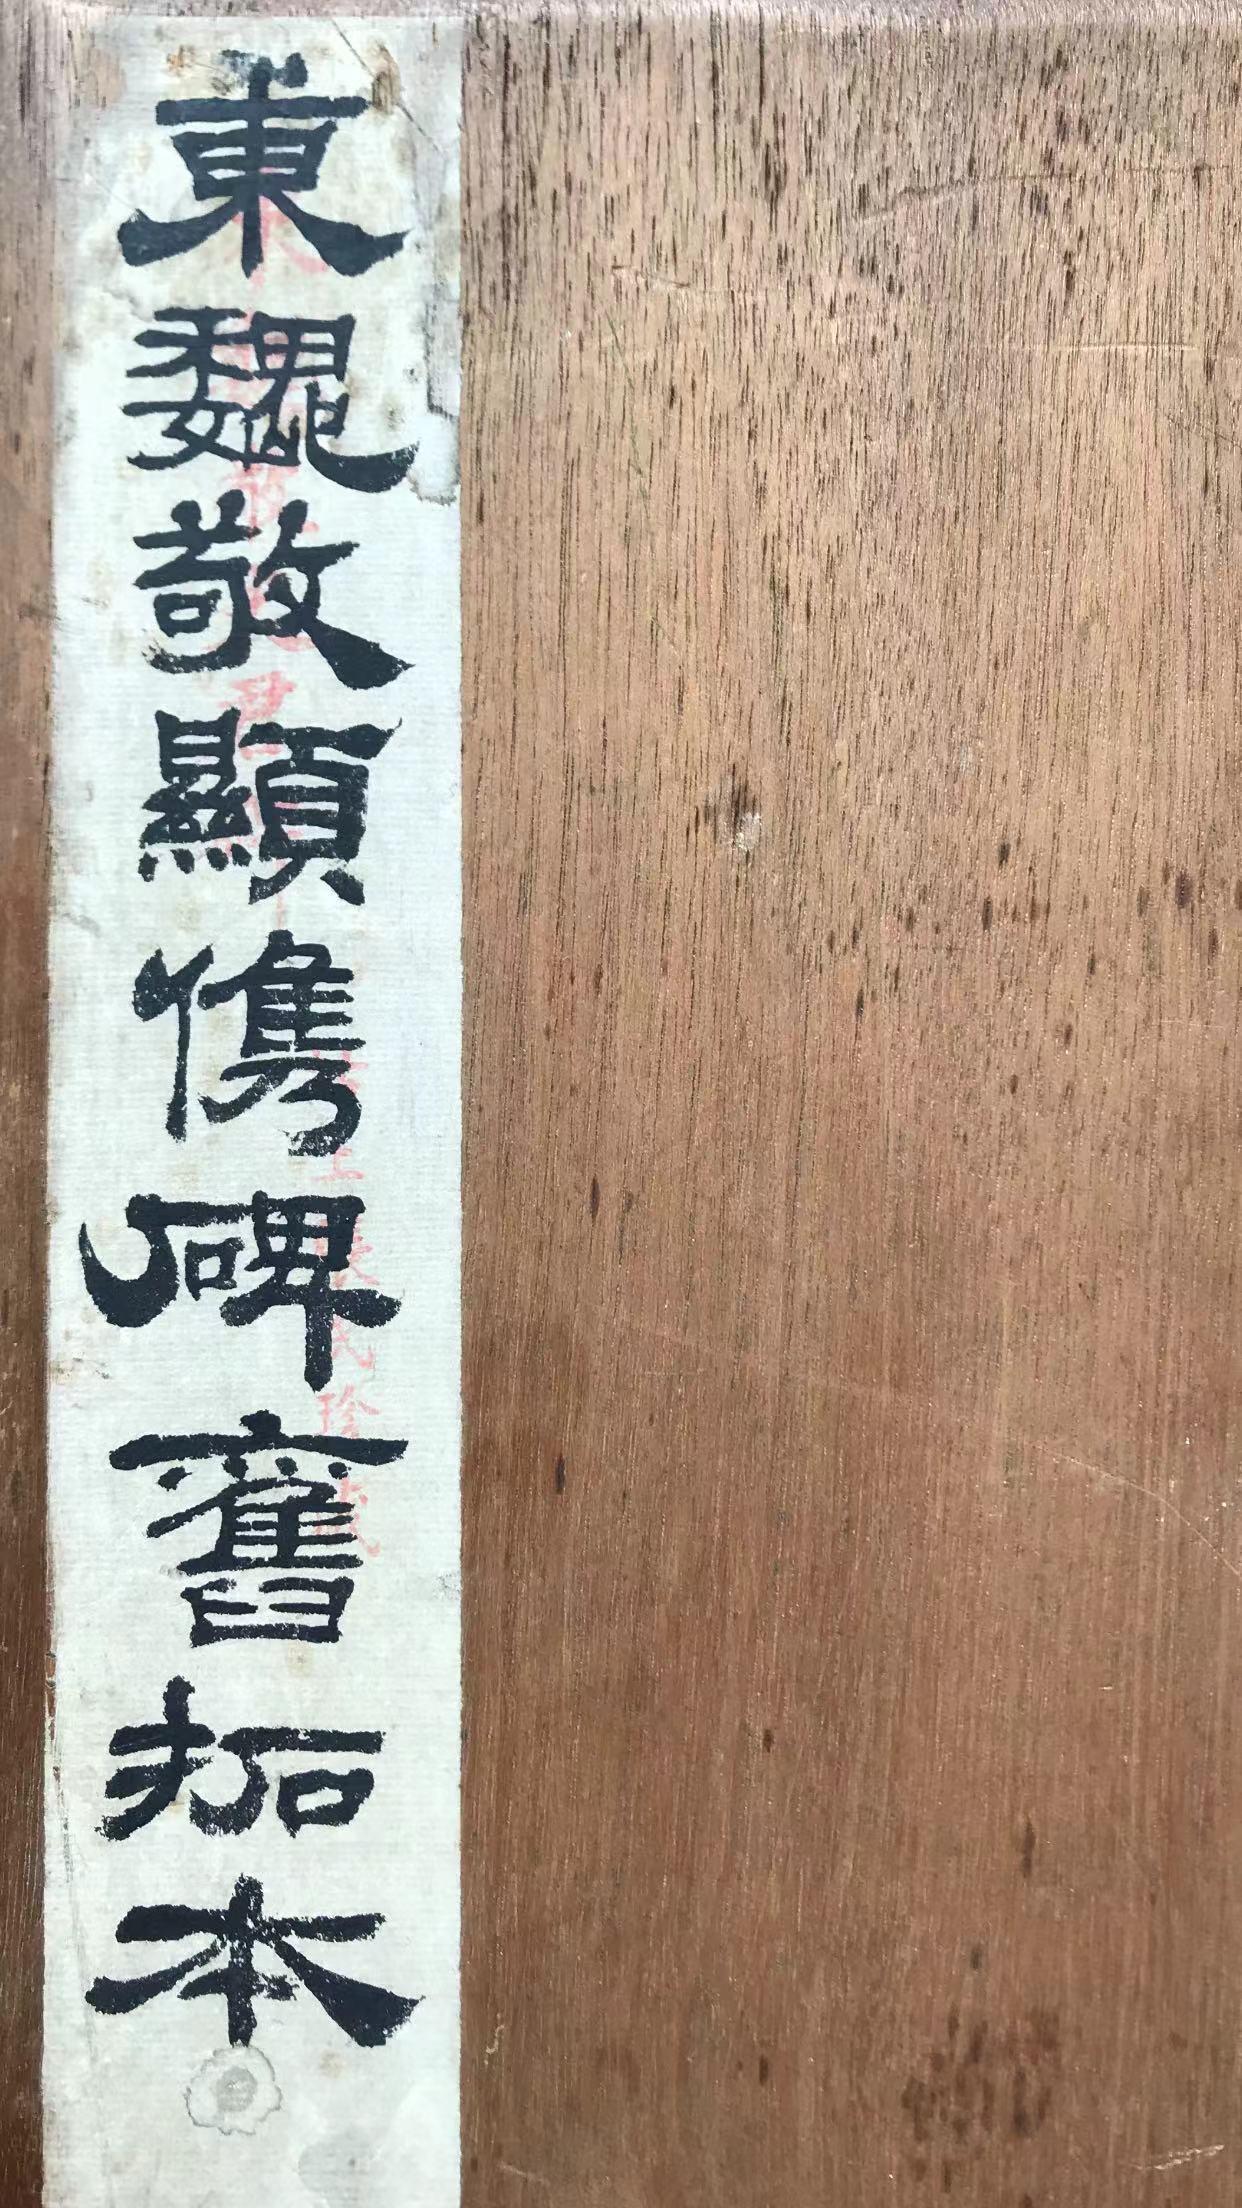 東魏敬顯儁碑舊拓本